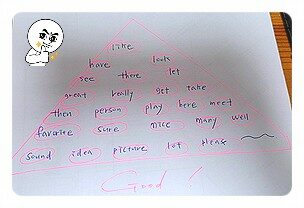 like
have look
see there let
great really get take
then person play here meet
favorite sure nice many well
sound idea picture lot
Good!